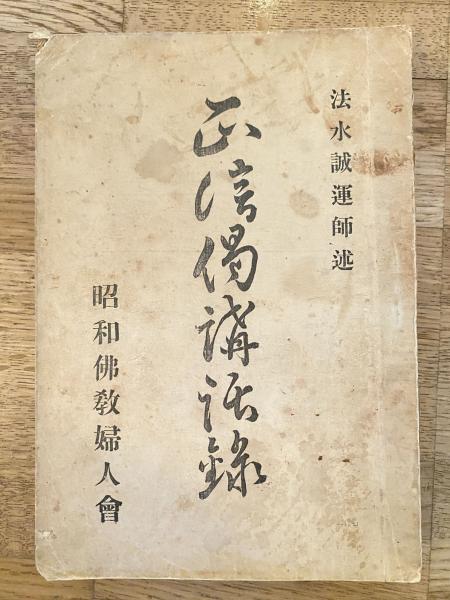 法水誠運師述
正信偈講話錄
昭和佛敎婦人會